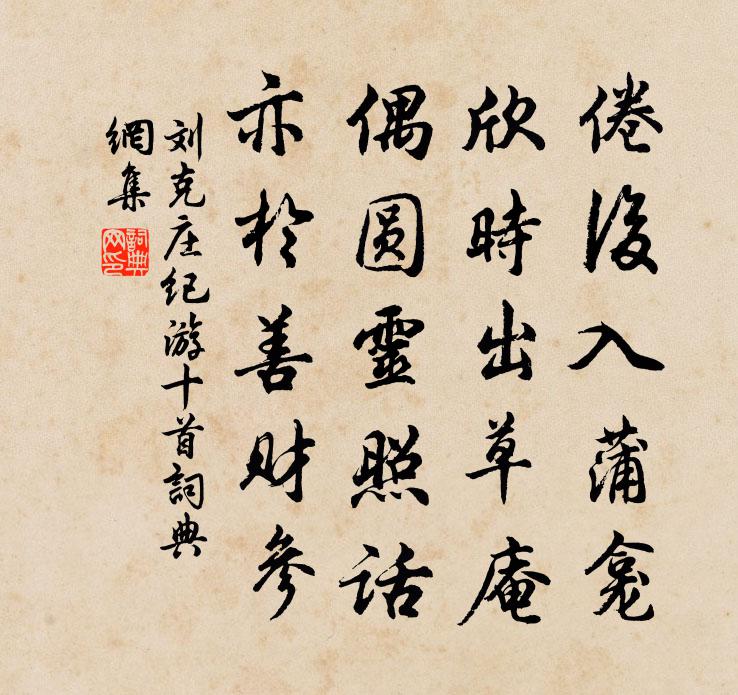 倦後入蒲龕
欣時出草庵
偶圆靈照話
亦於善财參
刘克庄纪游十首詞典
網集
詞典网印